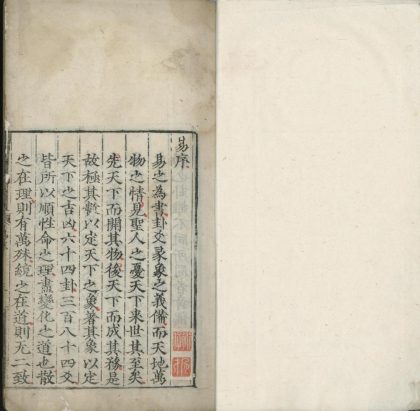 易序
易之為書卦爻彖象之義備而天地萬
物之情見聖人之憂天下來世其至矣
先天下而開其物後天下而成其務是
故極其數以定天下之象著其象以定
天下之吉凶六十四卦三百八十四爻
皆所以順性命之理盡變化之道也散
之在理則有萬殊統之在道則无二致